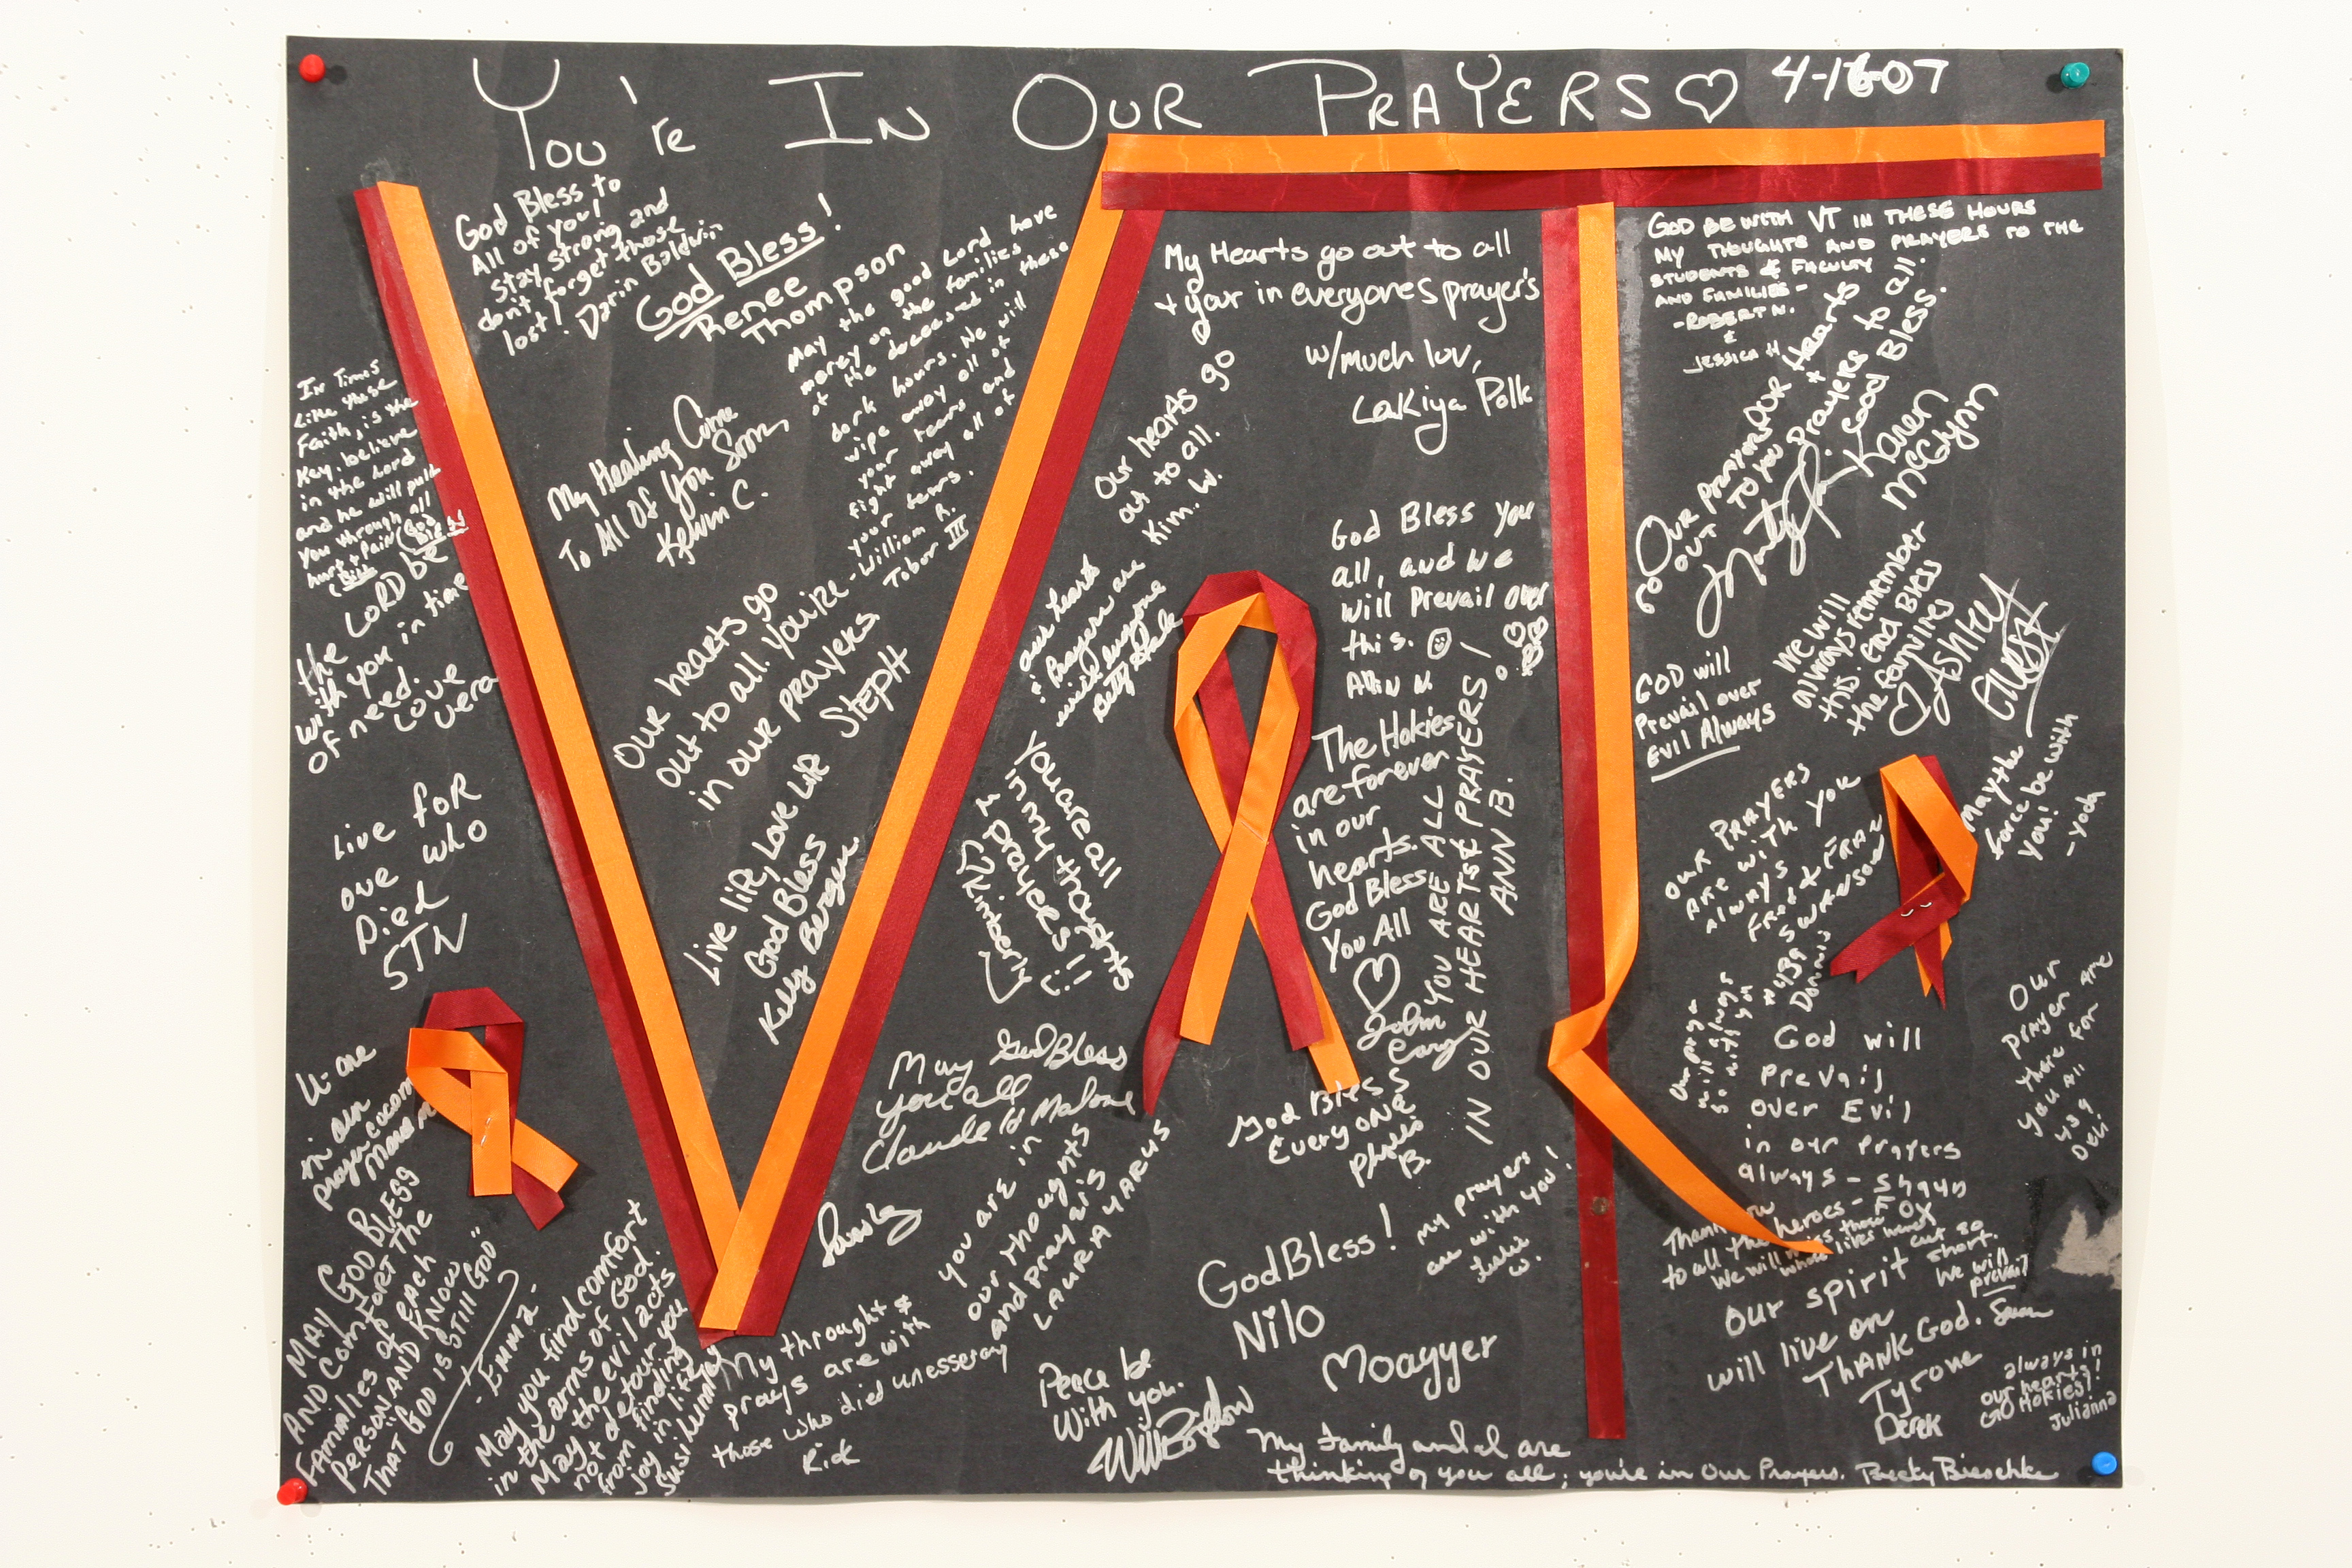 You're In Our Prayers ♡ 4-16-07
God Bless to
All of you!
Stay strong and
don't forget those
lost! Darin Baldwin
God Bless!
Renee
Thompson
May the good Lord have
mercy on the families
of the deceased in these
dark hours. He will
wipe away all of
your tears and
fight away all of
your fears.
-William R.
Tabor III
In Times
Like these
Faith, is the
Key. believe
in the Lord
and he will pull
you through all
hurt + Pain God Bless
Bill
the LORD be
with you in time
of need.
Love
Vera
My Healing Come
To All Of You Soon,
Kelvin C.
Our hearts go
out to all. You're
in our prayers.
Steph
Live life, Love life
God Bless
Kelly Burgun
Live for
one who
Died
STN
U are
in our
prayer
MAY GOD BLESS
AND COMFORT THE
FAMALIES of each
PERSON AND KNOW
THAT GOD IS STILL GOD"
-Emma-
May you find comfort
in the arms of God.
May the evil acts
not detour you
from finding
joy in life
Susi
My Hearts go out to all
+ your in everyones prayer's
w/much luv,
LaKiya Polk
Our hearts go
out to all.
Kim. W.
our hearts
& Prayers are
with everyone
Betty Hale
You are all
in my thoughts
& Prayers!!
Kimberly
God Bless you
all, and we
will Prevail over
this. ☺
Alvin N.
The Hokies
are forever
in our
hearts.
God Bless
You All
♡
John
YOU ARE ALL
IN OUR HEARTS & PRAYERS!
ANN B.
May God Bless
you all
Claude H Malone
God Bless
Every one
Phyllis
B.
you are in
our thoughts
and prayers
LAURA YARUS
My throught &
prays are with
those who died unesseray
Rick
God Bless!
Nilo
Moagger
my prayers
are with you!
Leslie
W.
Peace be
With you.
My family and I are
thinking of you all; you're in Our Prayers. Becky Bieschke
GOD BE WITH VT IN THESE HOURS
MY THOUGHTS AND PRAYERS TO THE
STUDENTS & FACULTY
AND FAMILIES -
-ROBERT N.
&
JESSICA H
OUR PRAYERS
GO OUT TO YOU
Our Hearts
+ Prayers to all.
Good Bless.
Karen
McGlynn
We will
always remember
this. God Bless
the families
♡ Ashley
GOD will
Prevail over
EVIL Always
May the
force be with
you!
- yoda
OUR PRAYERS
ARE WITH YOU
Always
Fred & FRAN
SWANSON
#439
Dennis
Our prayer
will always
be with you
Our
prayer are
there for
you All
439
Deli
God will
prevail
over Evil
in our prayers
always - Shaun
Thank you
to all the heroes -
We will miss those
whose lives were
cut so
short.
We will
prevail
Susan
Our spirit
will live on
THANK God.
Tyrone
Derek
always in
our hearts!
GO HOKIES!
Julianna